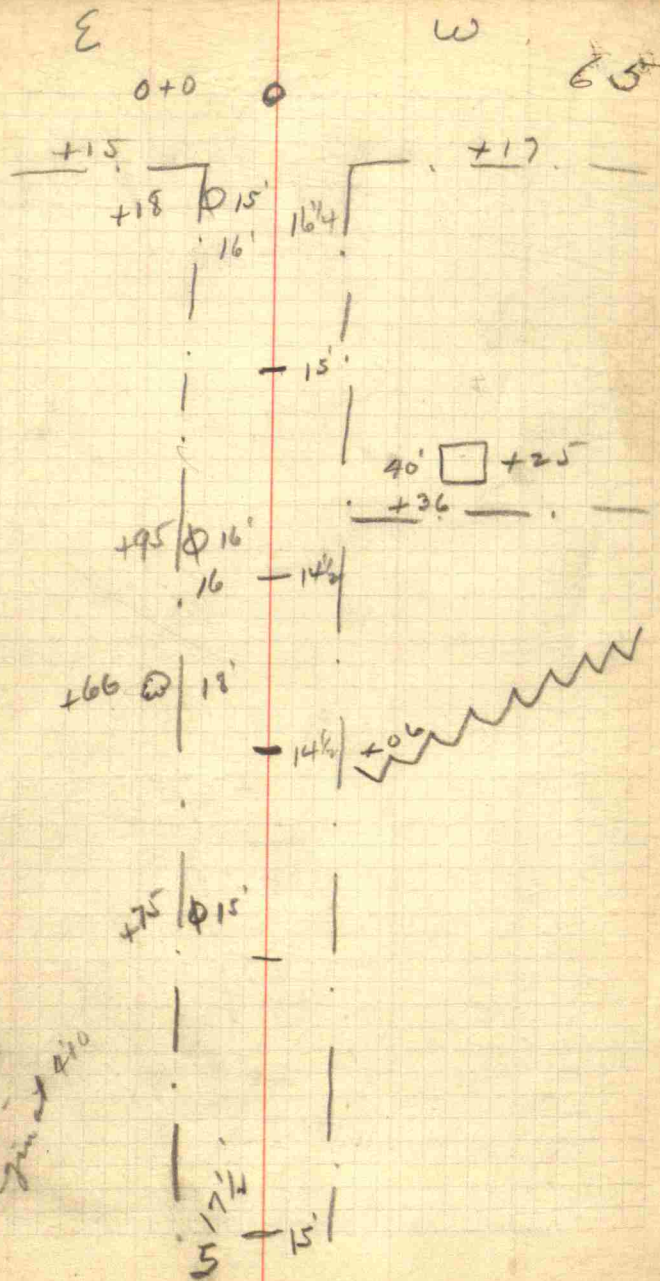 E W
65
0+0 0
+15 +17
+18 15' 16 1/4
16'
15'
40' +25
+36
+95 16'
16 14 1/2
+66 18'
14 1/2 +06
+75 15'
at 4+0
17 1/2
5 15'